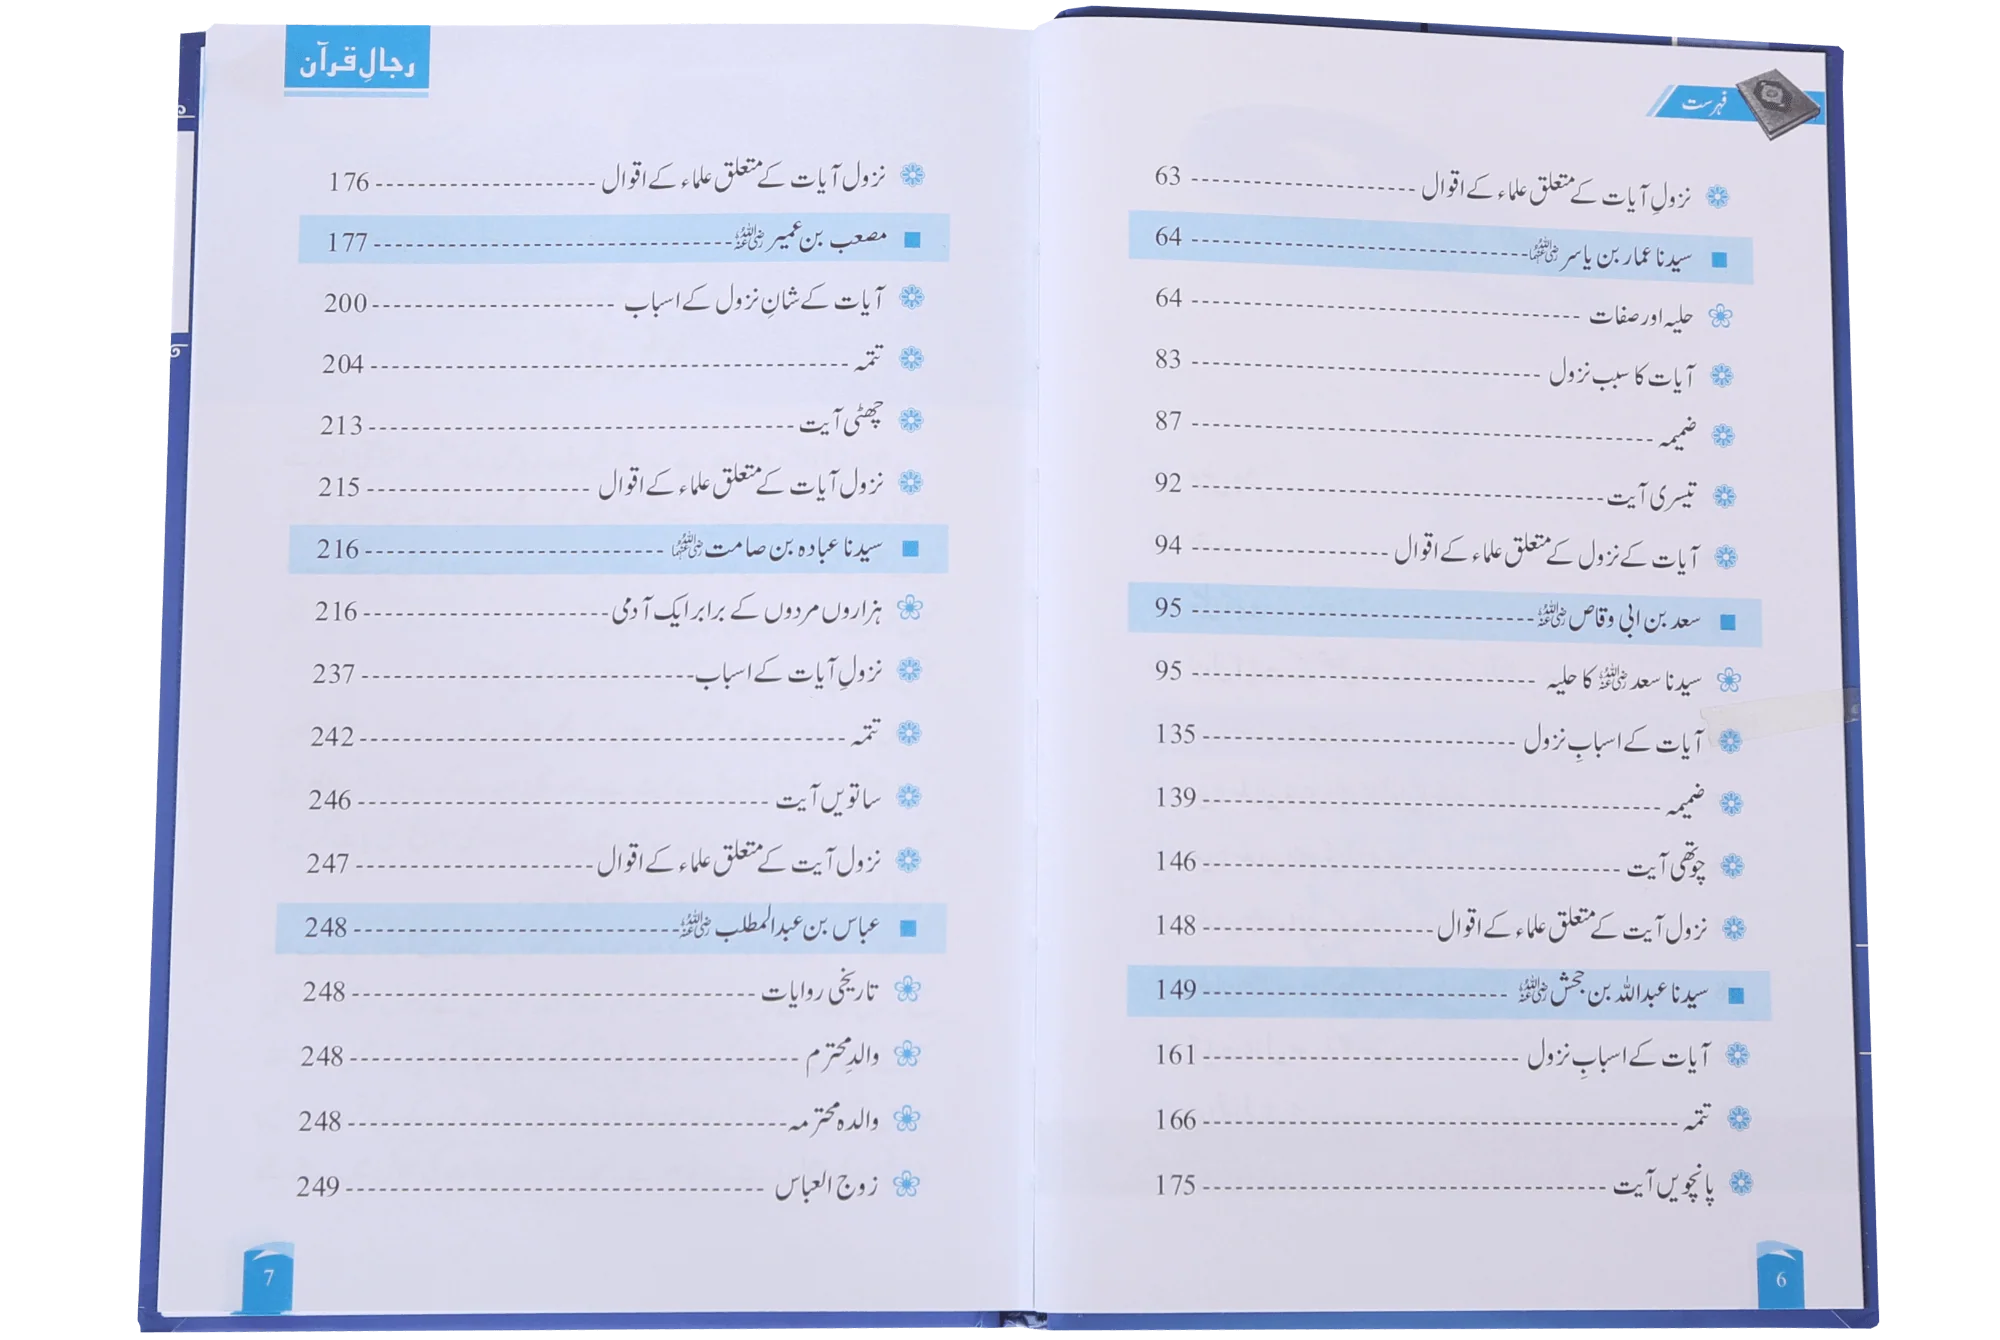 فہرست
نزولِ آیات کے متعلق علماء کے اقوال ---------- 63
سیدنا عمار بن یاسر رضی اللہ عنہما ---------- 64
حلیہ اور صفات ---------- 64
آیات کا سبب نزول ---------- 83
ضمیمہ ---------- 87
تیسری آیت ---------- 92
آیات کے نزول کے متعلق علماء کے اقوال ---------- 94
سعد بن ابی وقاص رضی اللہ عنہ ---------- 95
سیدنا سعد رضی اللہ عنہ کا حلیہ ---------- 95
آیات کے اسبابِ نزول ---------- 135
ضمیمہ ---------- 139
چوتھی آیت ---------- 146
نزول آیت کے متعلق علماء کے اقوال ---------- 148
سیدنا عبداللہ بن جحش رضی اللہ عنہ ---------- 149
آیات کے اسبابِ نزول ---------- 161
تتمہ ---------- 166
پانچویں آیت ---------- 175
6
رجالِ قرآن
نزول آیات کے متعلق علماء کے اقوال ---------- 176
مصعب بن عمیر رضی اللہ عنہ ---------- 177
آیات کے شانِ نزول کے اسباب ---------- 200
تتمہ ---------- 204
چھٹی آیت ---------- 213
نزول آیات کے متعلق علماء کے اقوال ---------- 215
سیدنا عبادہ بن صامت رضی اللہ عنہما ---------- 216
ہزاروں مردوں کے برابر ایک آدمی ---------- 216
نزولِ آیات کے اسباب ---------- 237
تتمہ ---------- 242
ساتویں آیت ---------- 246
نزول آیت کے متعلق علماء کے اقوال ---------- 247
عباس بن عبدالمطلب رضی اللہ عنہ ---------- 248
تاریخی روایات ---------- 248
والدِ محترم ---------- 248
والدہ محترمہ ---------- 248
زوج العباس ---------- 249
7